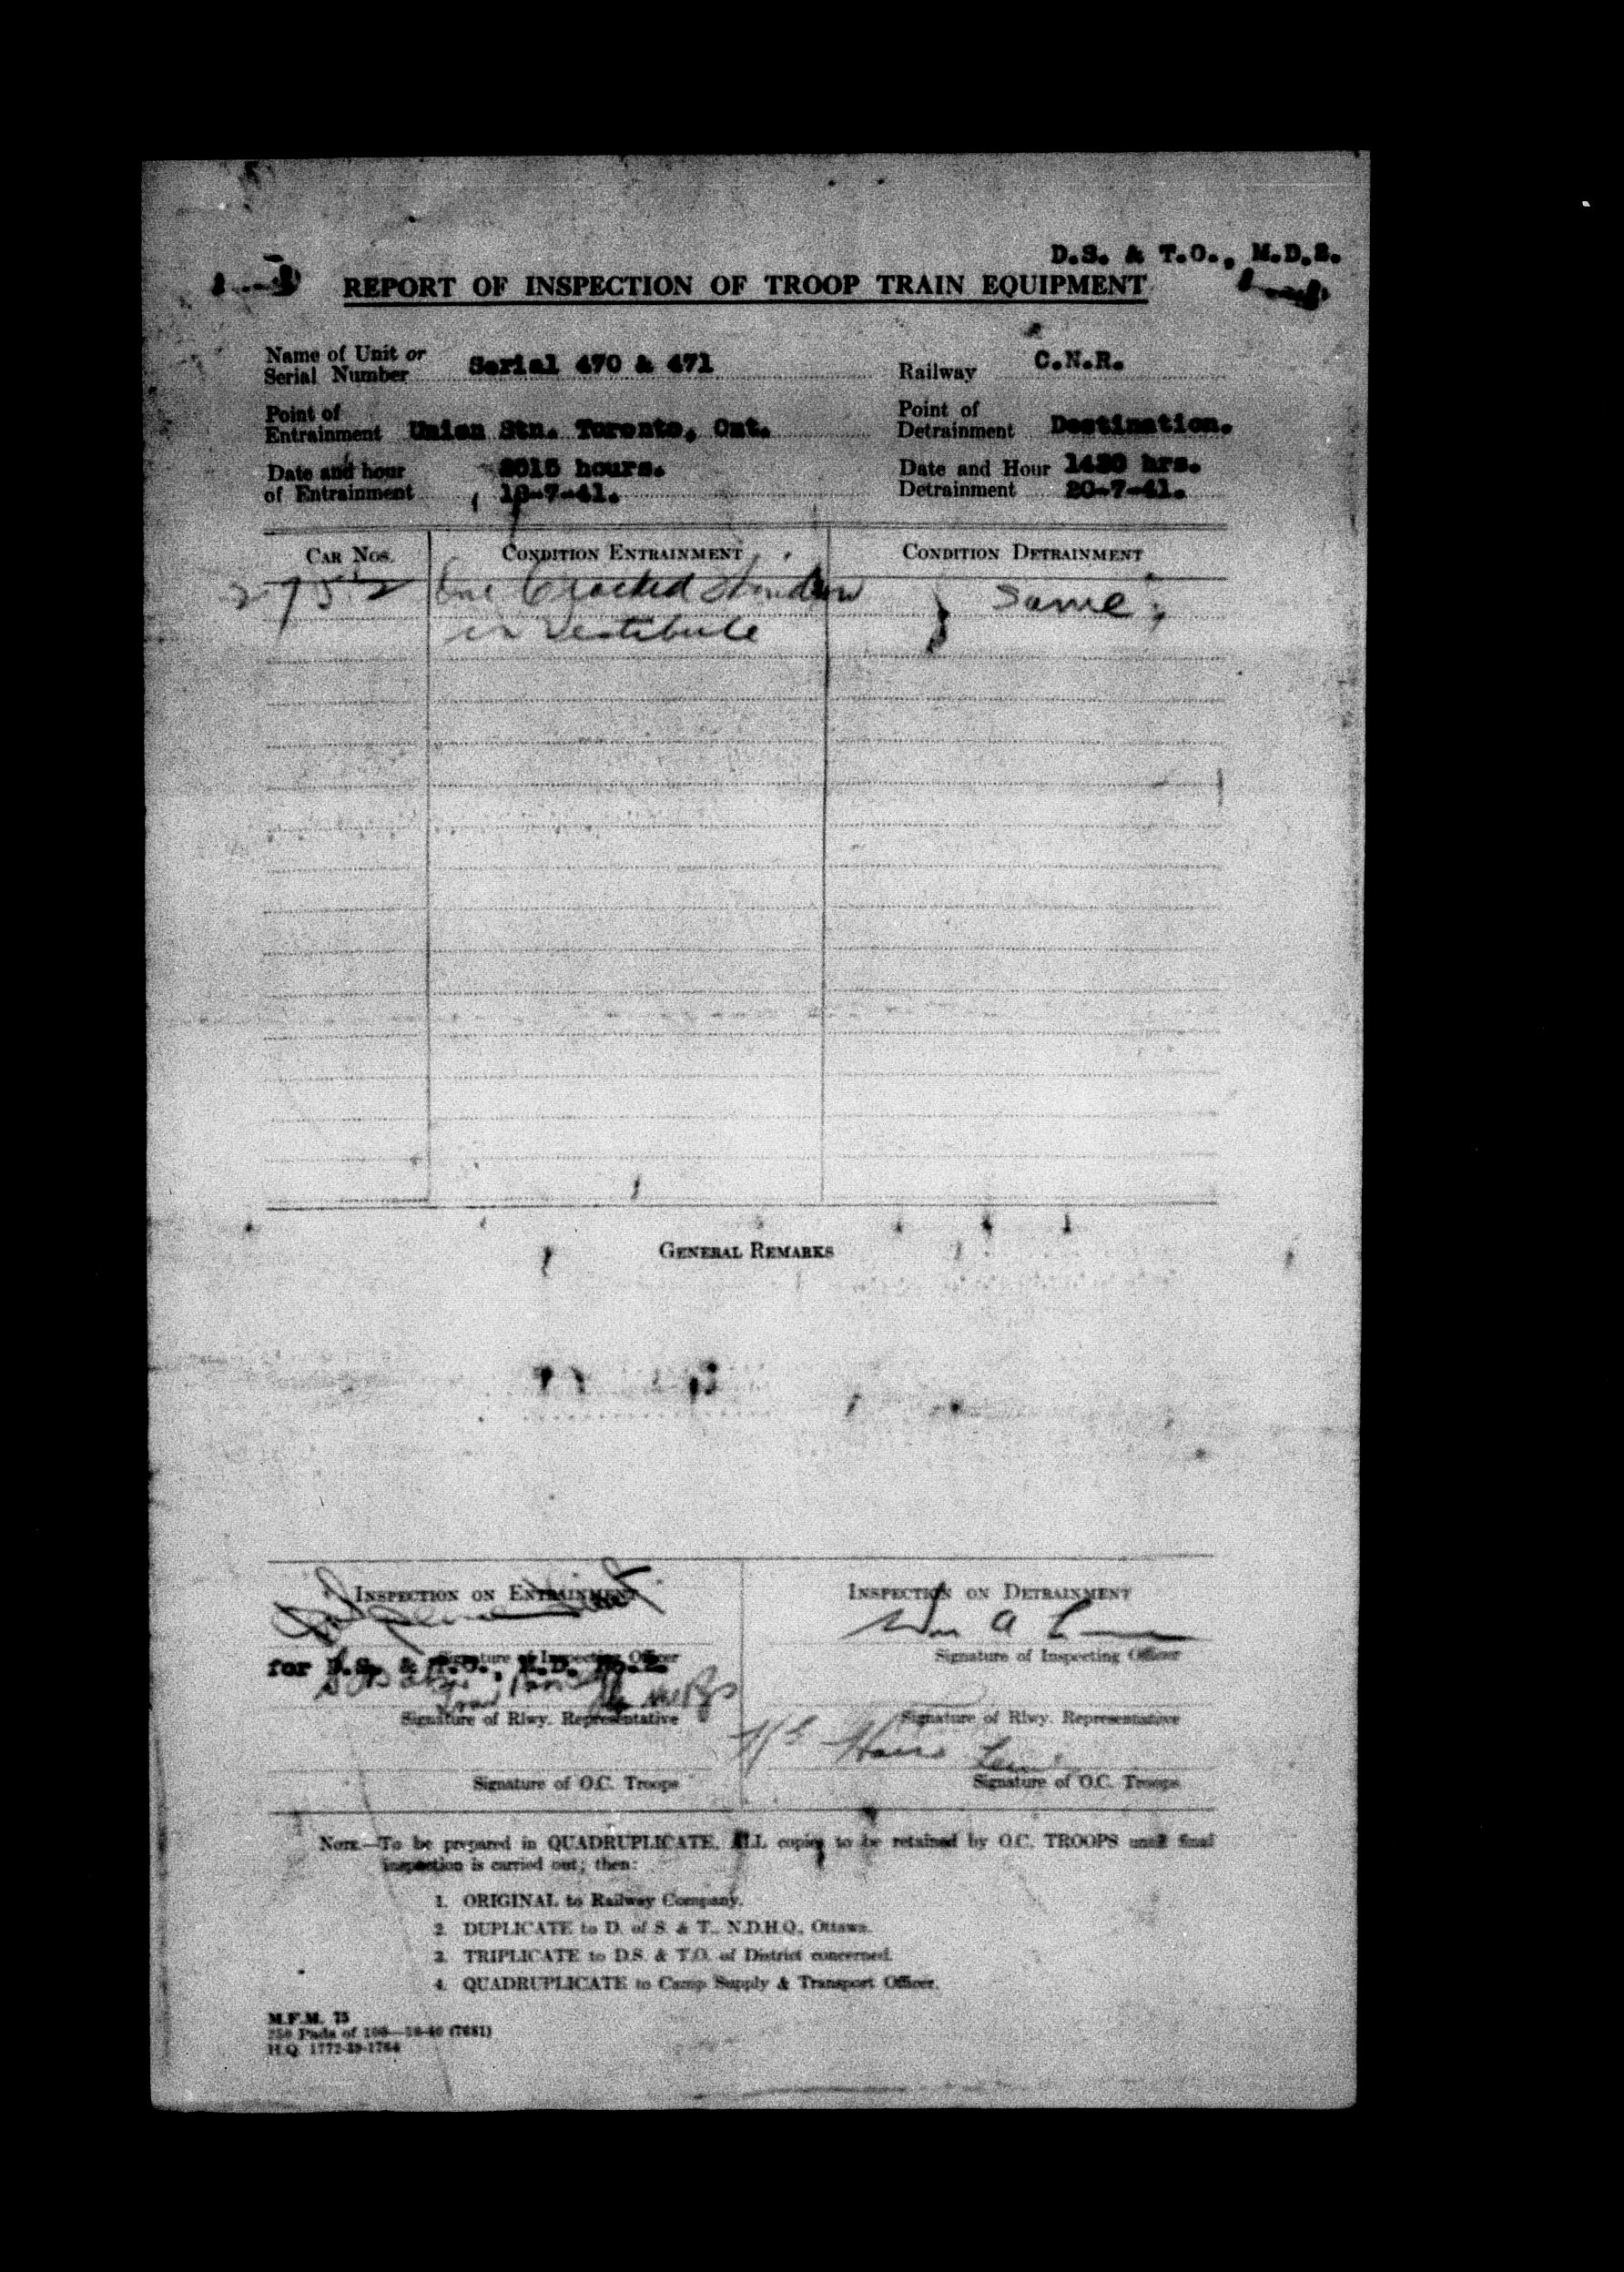 D.S. & T.O., M.D.2.
REPORT OF INSPECTION OF TROOP TRAIN EQUIPMENT
Name of Unit or
Serial Number Serial 470 & 471
Railway C.N.R.
Point of
Entrainment Union Stn. Toronto, Ont.
Point of
Detrainment Destination.
Date and hour 2015 hours.
of Entrainment 18-7-41.
Date and Hour 1430 hrs.
Detrainment 20-7-41.
CAR NOS. CONDITION ENTRAINMENT CONDITION DETRAINMENT
2752 One Cracked Window Same
in vestibule
GENERAL REMARKS
INSPECTION ON ENTRAINMENT
INSPECTION ON DETRAINMENT
Wm A
Signature of Inspecting Officer
Signature of Inspecting Officer
for D.S. & T.O., M.D. No.2
Signature of Rlwy. Representative
Signature of Rlwy. Representative
Signature of O.C. Troops
Signature of O.C. Troops
NOTE.—To be prepared in QUADRUPLICATE. ALL copies to be retained by O.C. TROOPS until final
inspection is carried out; then:
1. ORIGINAL to Railway Company.
2. DUPLICATE to D. of S. & T., N.D.H.Q., Ottawa.
3. TRIPLICATE to D.S. & T.O. of District concerned.
4. QUADRUPLICATE to Camp Supply & Transport Officer.
M.F.M. 75
250 Pads of 100—10-40 (7681)
H.Q. 1772-39-1764